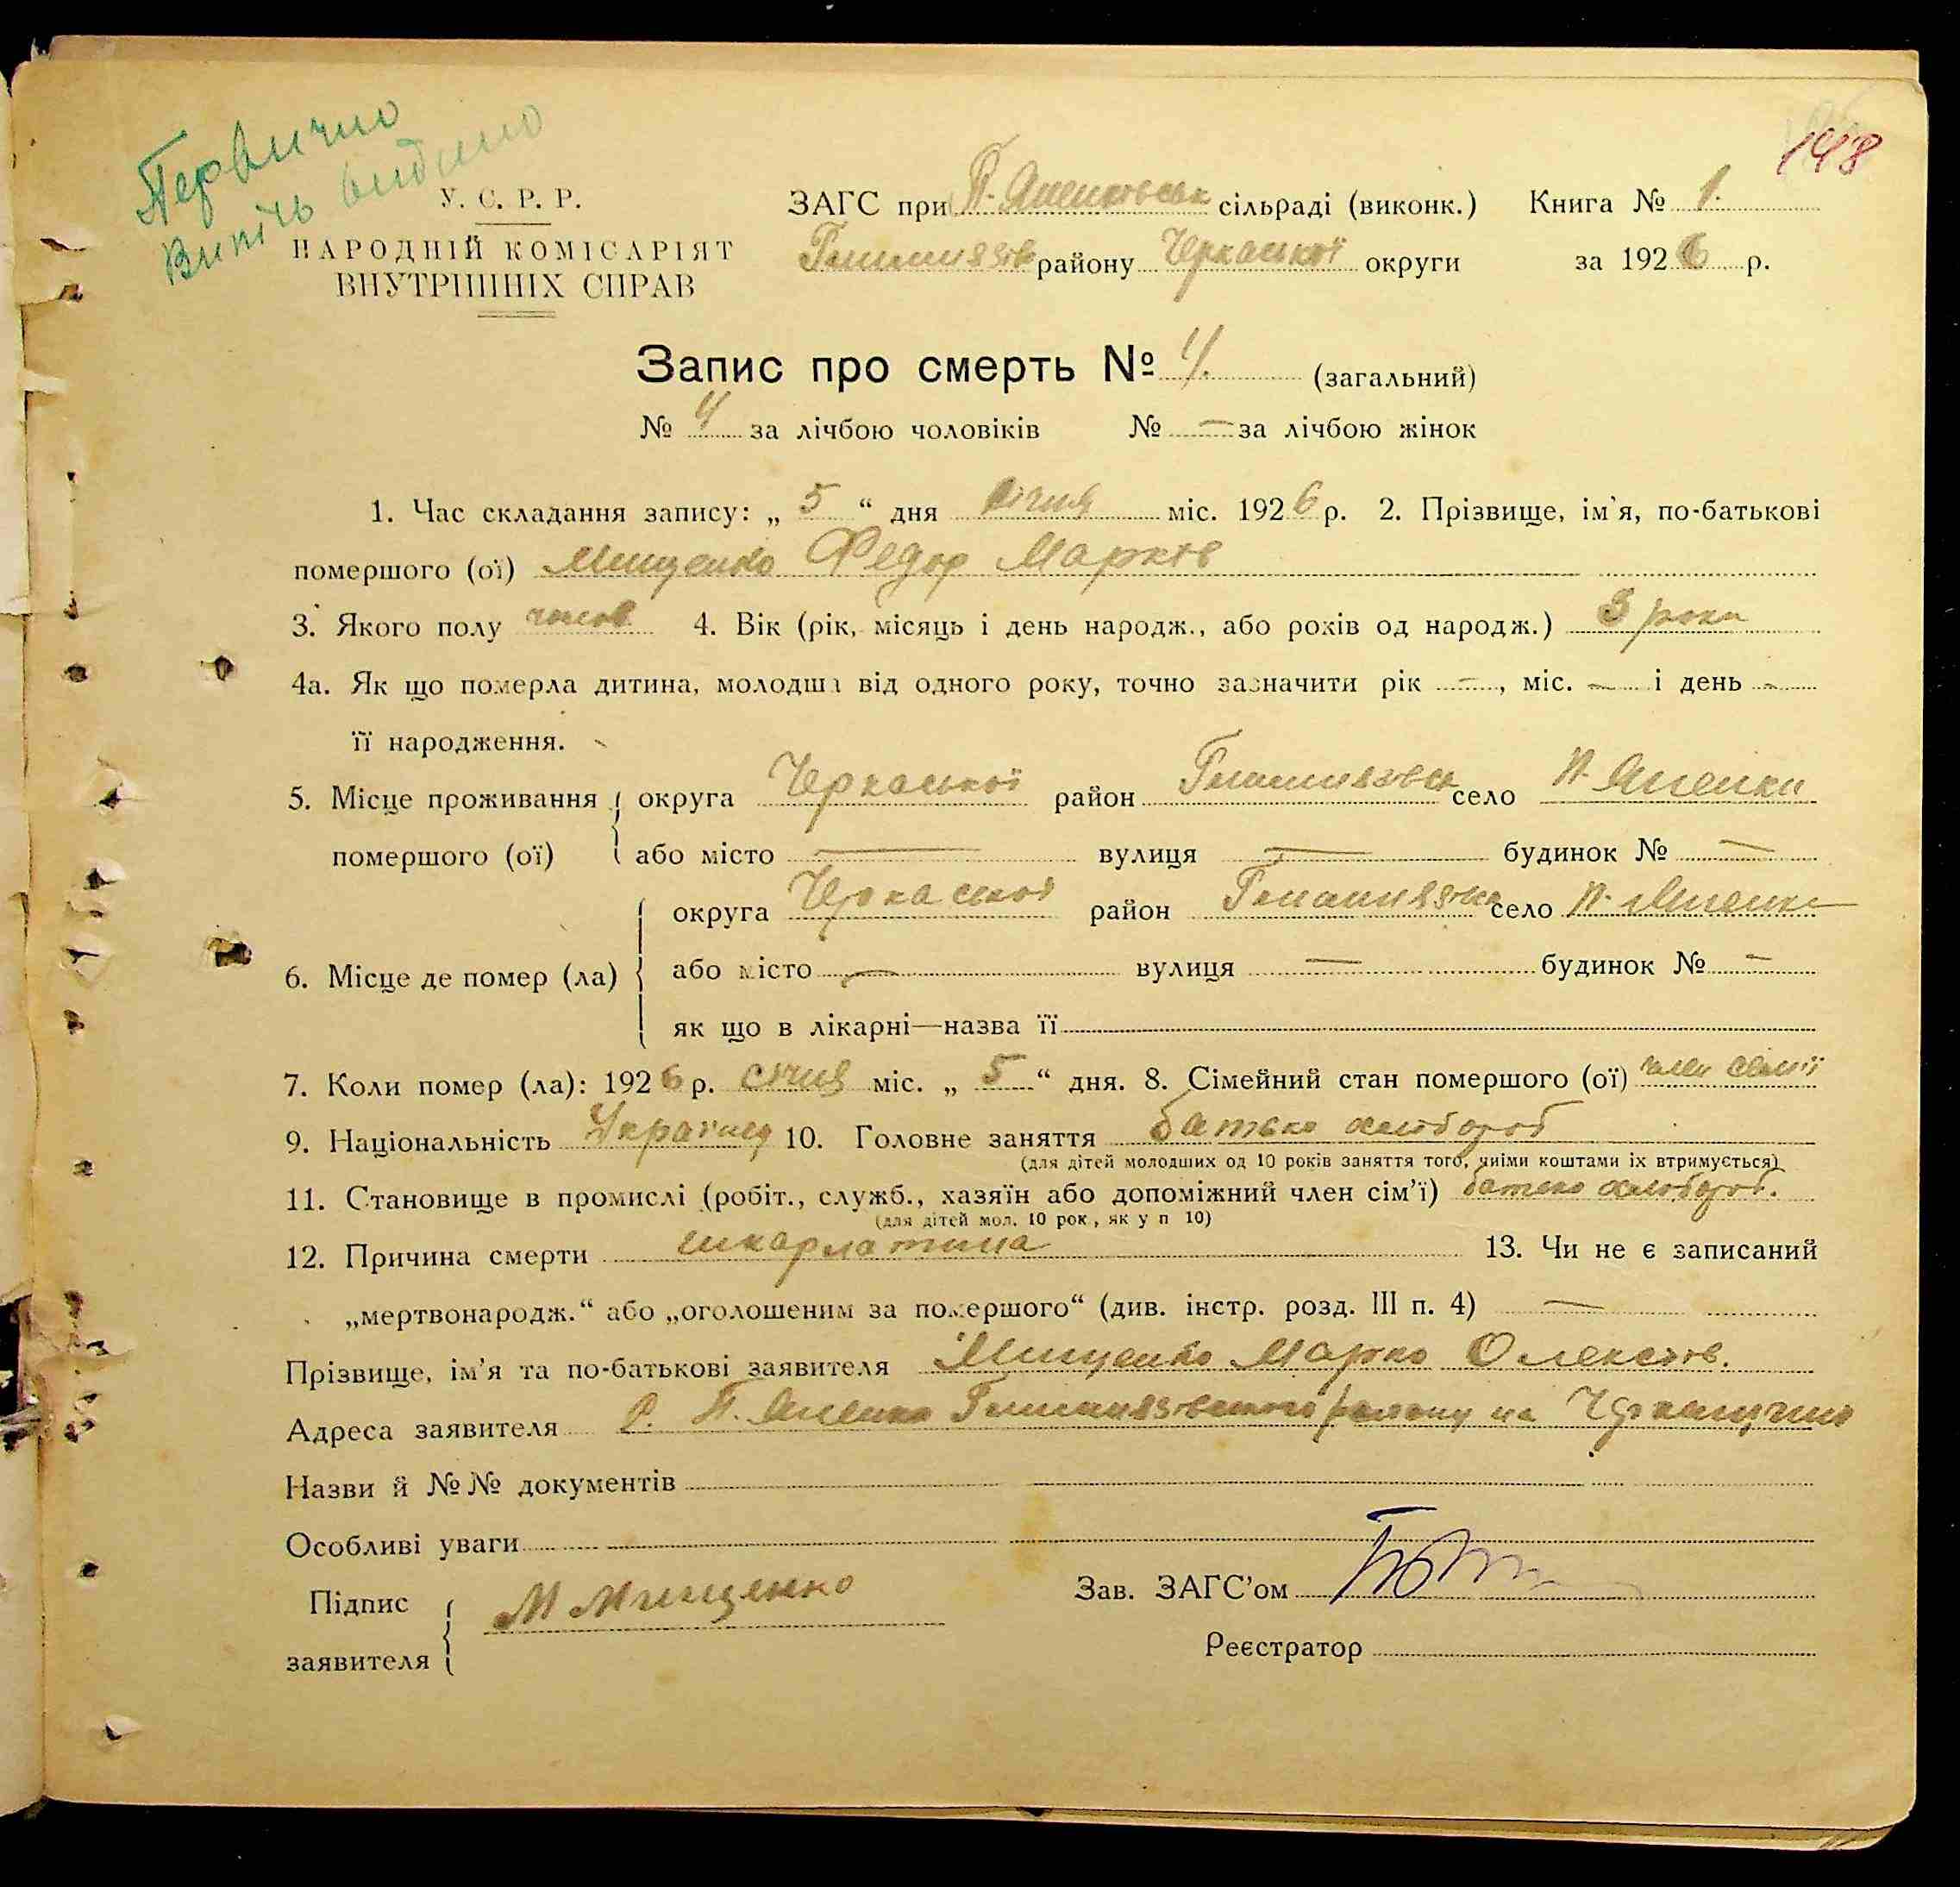 148
Первично
Витяг видано
У. С. Р. Р.
НАРОДНІЙ КОМІСАРІЯТ
ВНУТРІШНІХ СПРАВ
ЗАГС при П. сільраді (виконк.) Книга № 1.
району Черкаської округи за 1926 р.
Запис про смерть № 4. (загальний)
№ 4 за лічбою чоловіків № — за лічбою жінок
1. Час складання запису: „ 5 “ дня січня міс. 1926 р. 2. Прізвище, ім'я, по-батькові
помершого (ої) Мищенко Федор Марків
3. Якого полу чолов 4. Вік (рік, місяць і день народж., або років од народж.) 3 роки
4а. Як що померла дитина, молодша від одного року, точно зазначити рік —, міс. — і день —
її народження.
5. Місце проживання помершого (ої)
округа Черкаської район Гельмязівськ село П. Яненки
або місто — вулиця — будинок № —
6. Місце де помер (ла)
округа Черкаської район Гельмязівськ село П. Яненки
або місто — вулиця — будинок № —
як що в лікарні—назва її
7. Коли помер (ла): 1926 р. січня міс. „ 5 “ дня. 8. Сімейний стан помершого (ої) член семії
9. Національність Українец 10. Головне заняття батько хлібороб
(для дітей молодших од 10 років заняття того, чиїми коштами їх втримується)
11. Становище в промислі (робіт., служб., хазяїн або допоміжний член сім'ї) батько хлібороб.
(для дітей мол. 10 рок., як у п 10)
12. Причина смерти шкарлатина 13. Чи не є записаний
„мертвонародж.“ або „оголошеним за помершого“ (див. інстр. розд. III п. 4) —
Прізвище, ім'я та по-батькові заявителя Мищенко Марко Олексіїв.
Адреса заявителя с. П. Яненки Гельмязівського району на Черкащині
Назви й №№ документів
Особливі уваги
Підпис заявителя М Мищенко
Зав. ЗАГС'ом
Реєстратор